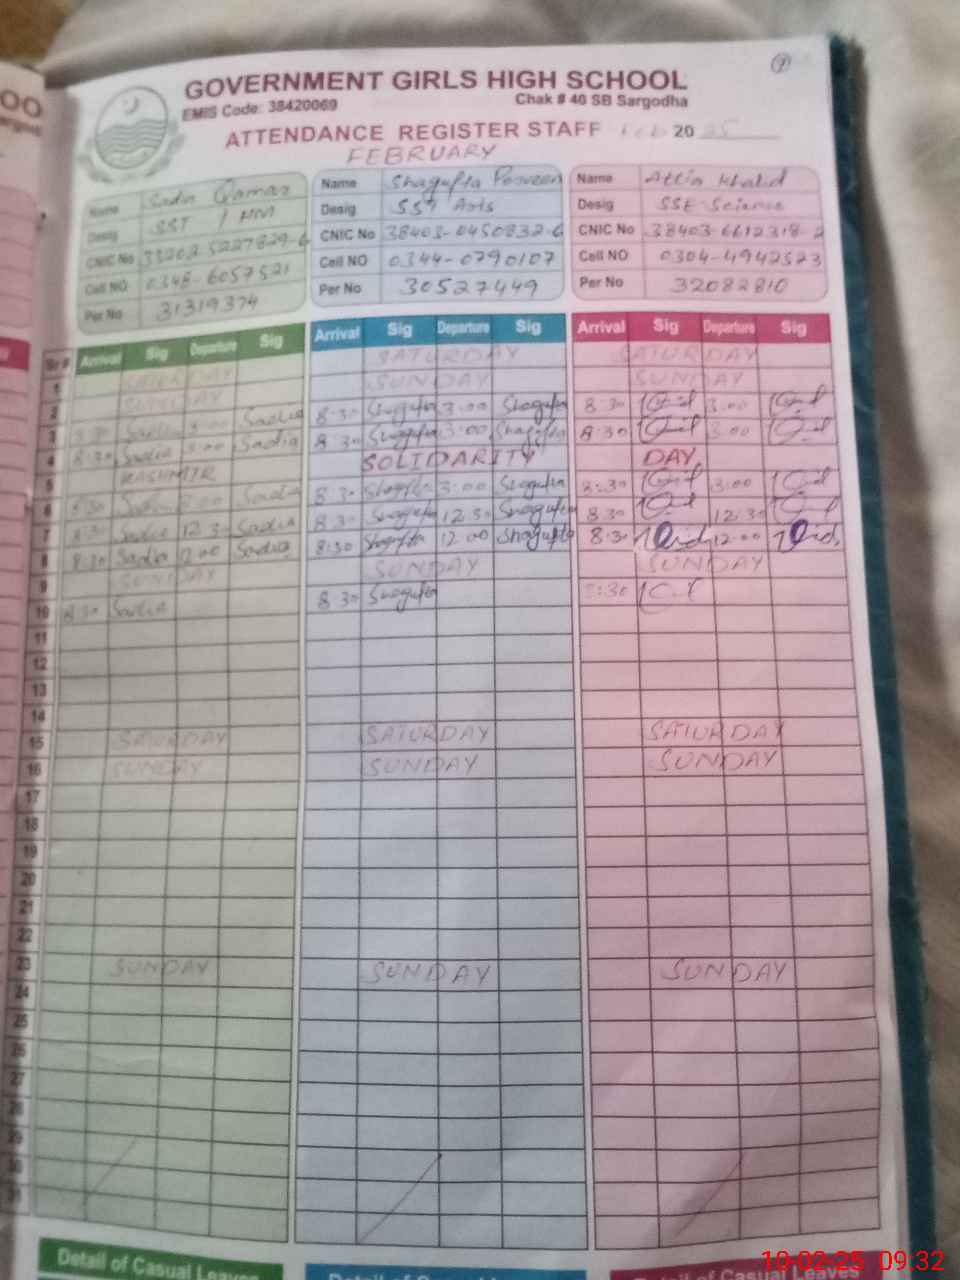 GOVERNMENT GIRLS HIGH SCHOOL
EMIS Code: 38420069 Chak # 46 SB Sargodha
ATTENDANCE REGISTER STAFF Feb 2025
FEBRUARY
Name Sadia Qamar
Desig SST / HM
CNIC No
Cell NO 0348-6057521
Per No 31319374
Name Shagufta Parveen
Desig SST Arts
CNIC No 38403-0450832-6
Cell NO 0344-0790107
Per No 30527449
Name Attia Khalid
Desig SSE-Science
CNIC No 38403-6612318-2
Cell NO 0304-4942523
Per No 32082810
Sr # Arrival Sig Departure Sig Arrival Sig Departure Sig Arrival Sig Departure Sig
1 SATURDAY SATURDAY SATURDAY
2 SUNDAY SUNDAY SUNDAY
3 8:30 Sadia 3:00 Sadia 8:30 Shagufta 3:00 Shagufta 8:30 3:00
4 8:30 Sadia 3:00 Sadia 8:30 Shagufta 3:00 Shagufta 8:30 3:00
5 KASHMIR SOLIDARITY DAY
6 8:30 Sadia 3:00 Sadia 8:30 Shagufta 3:00 Shagufta 8:30 3:00
7 8:30 Sadia 12:30 Sadia 8:30 Shagufta 12:30 Shagufta 8:30 12:30
8 8:30 Sadia 12:00 Sadia 8:30 Shagufta 12:00 Shagufta 8:30 12:00
9 SUNDAY SUNDAY SUNDAY
10 8:30 Sadia 8:30 Shagufta 8:30
11
12
13
14
15 SATURDAY SATURDAY SATURDAY
16 SUNDAY SUNDAY SUNDAY
17
18
19
20
21
22
23 SUNDAY SUNDAY SUNDAY
24
25
26
27
28
29
30
31
Detail of Casual Leaves
10-02-25 09:32